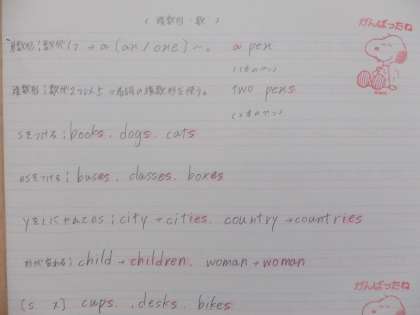 (複数形・数)
単数形；数が1つ → a (an / one) 〜.  a pen
がんばったね
(1本のペン)
複数形；数が2つ以上 → 名詞の複数形を使う。 two pens
(2本のペン)
sをつける；books. dogs. cats
esをつける；buses. classes. boxes
yをiにかえてes；city → cities. country → countries
形が変わる；child → children. woman → woman
がんばったね
[s ス] cups. desks. bikes